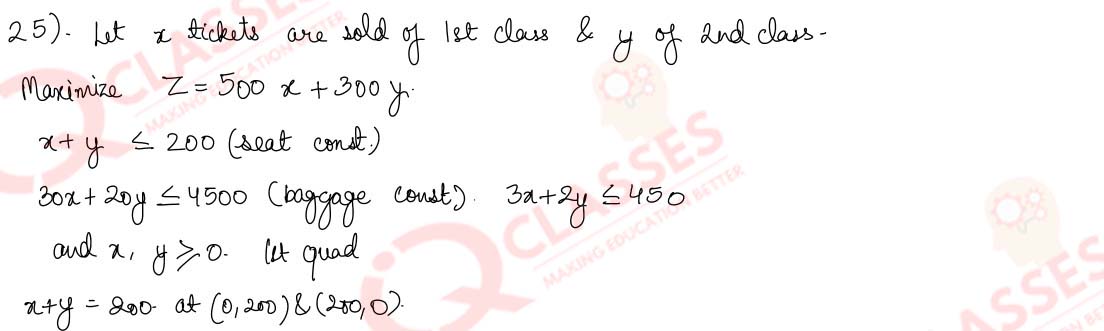 25). Let x tickets are sold of 1st class & y of 2nd class-
Maximize Z = 500 x + 300 y.
x + y ≤ 200 (seat const.)
30x + 20y ≤ 4500 (baggage const). 3x+2y ≤ 450
and x, y ≥ 0. Ist quad
x+y = 200. at (0,200) & (200,0).
IQ CLASSES
MAKING EDUCATION BETTER
IQ CLASSES
MAKING EDUCATION BETTER
ASSES